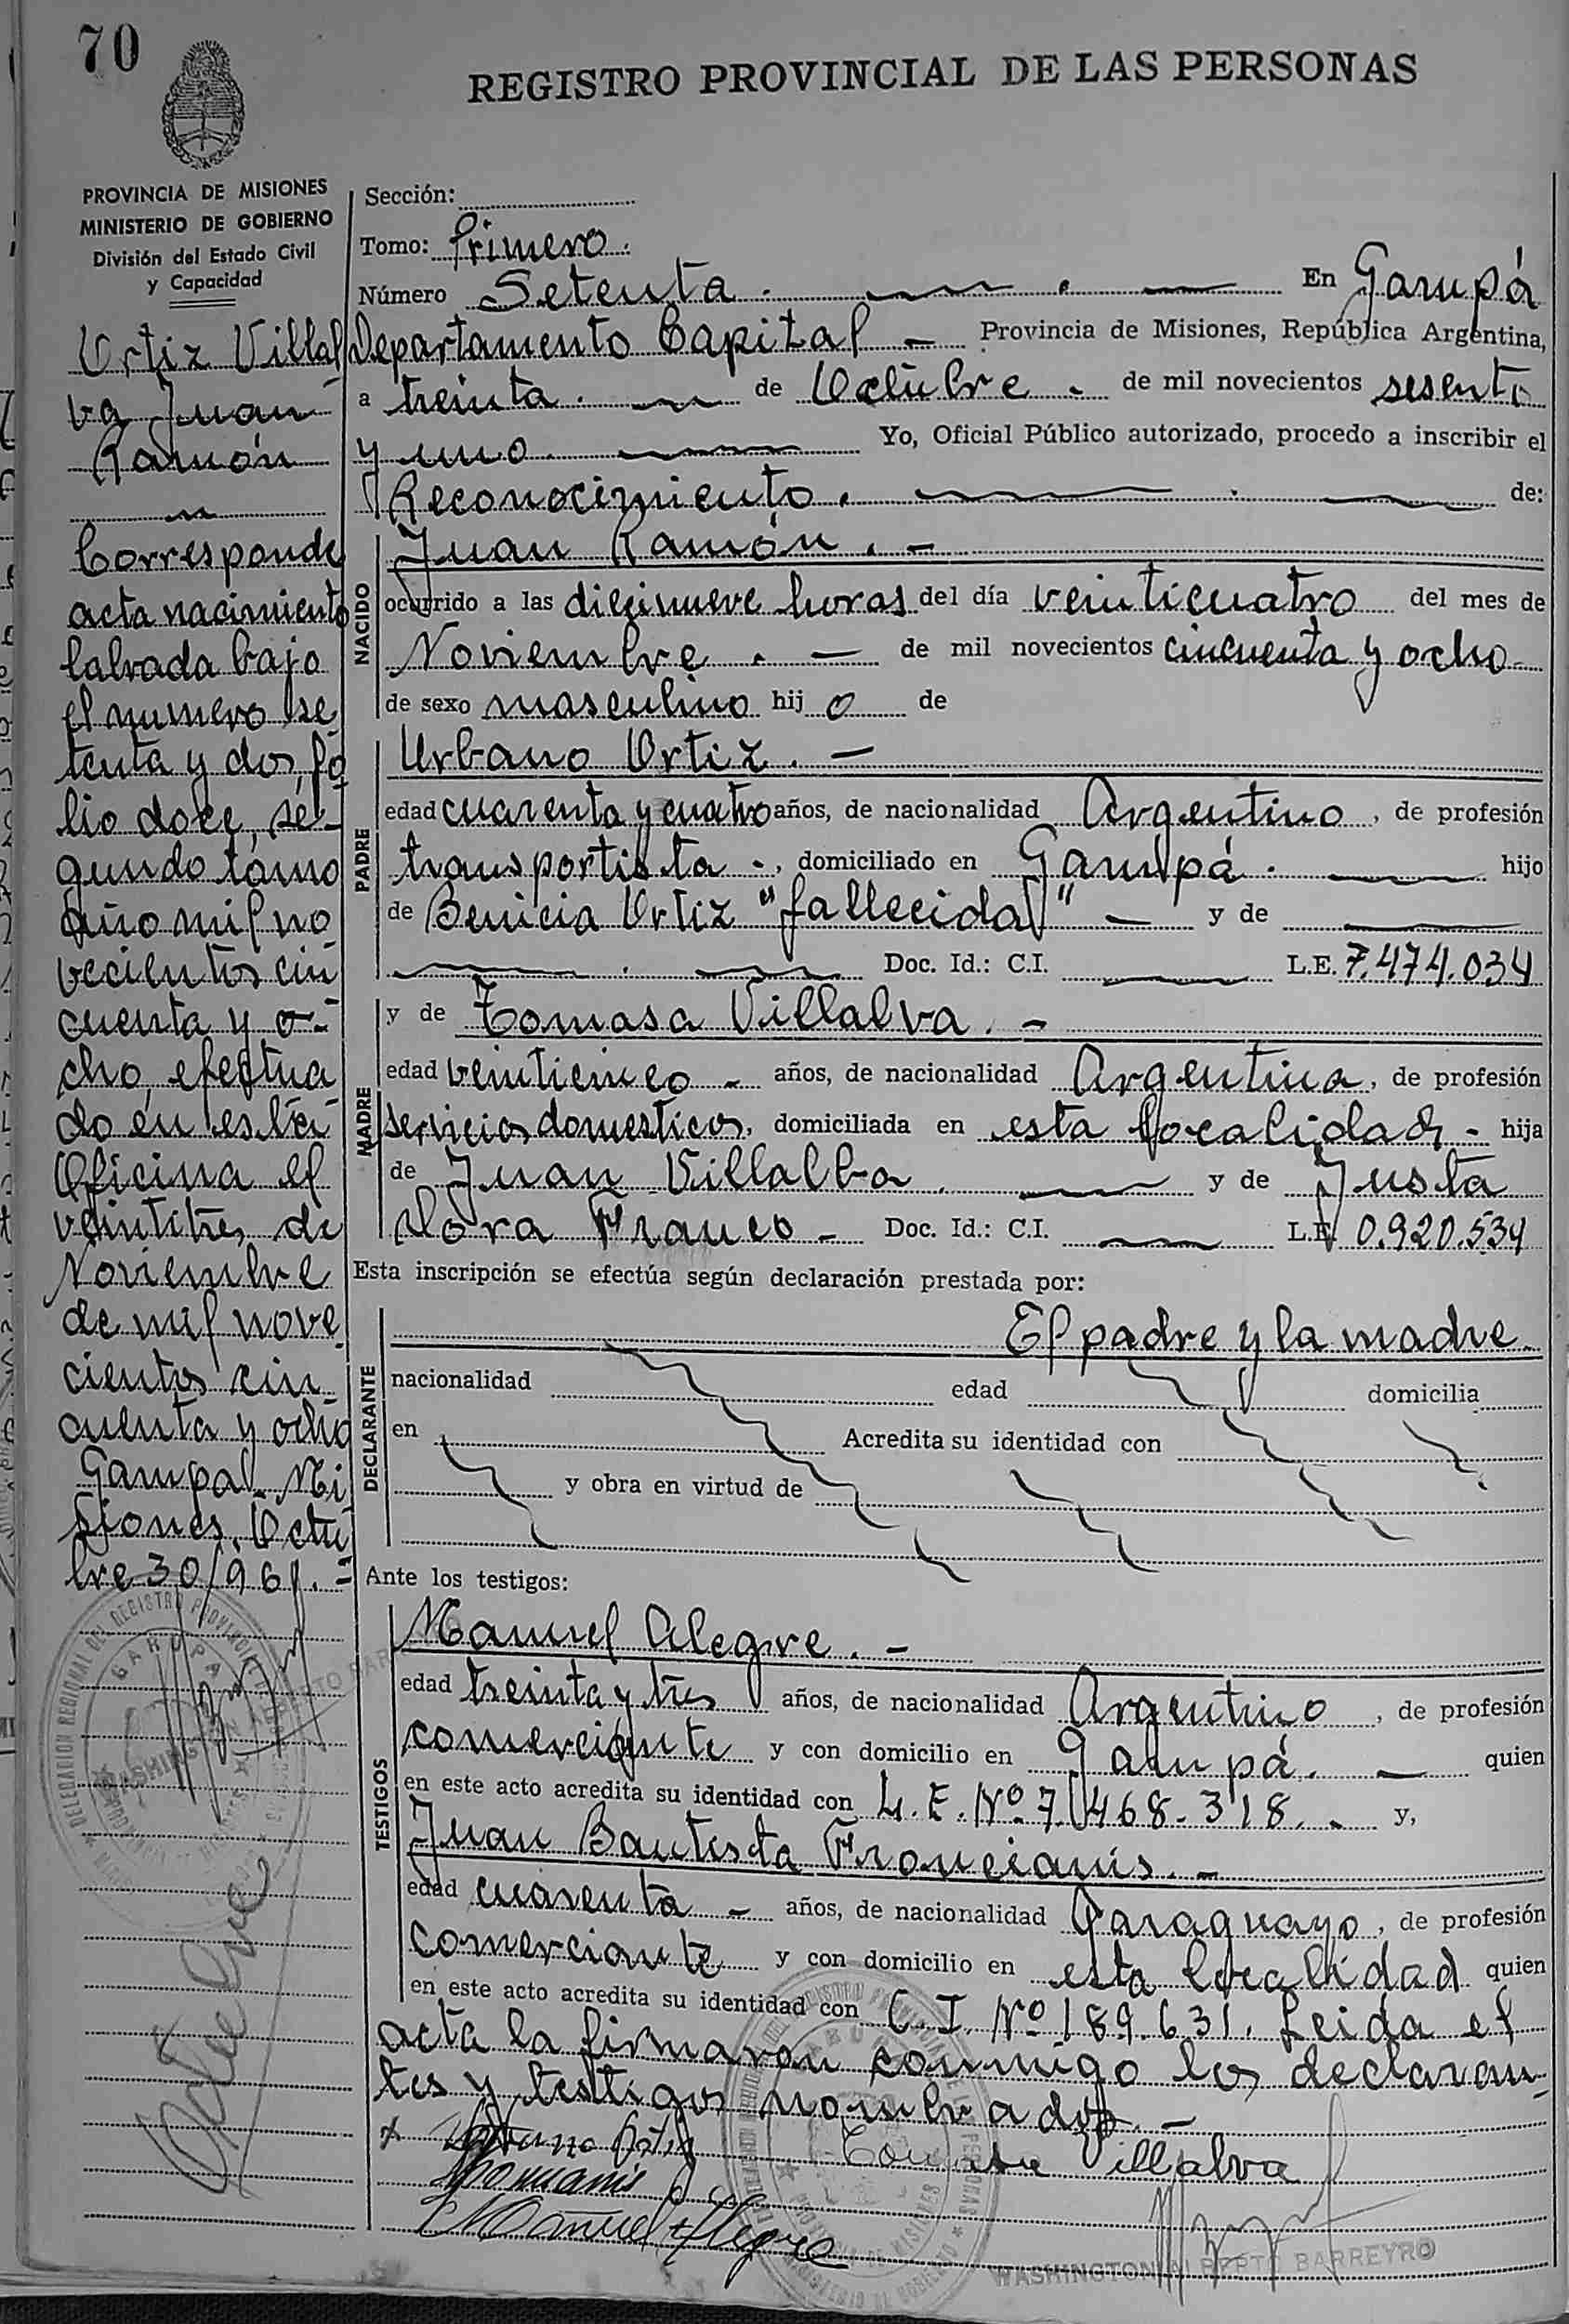 70
REGISTRO PROVINCIAL DE LAS PERSONAS
PROVINCIA DE MISIONES
MINISTERIO DE GOBIERNO
División del Estado Civil
y Capacidad
Ortiz Villal
va Juan
Ramón
Corresponde
acta nacimiento
labrada bajo
el numero se
tenta y dos, fo
lio doce, se-
gundo tomo
año mil no
vecientos cin
cuenta y o-
cho, efectua
do en esta
Oficina el
veintitres de
Noviembre
de mil nove
cientos cin
cuenta y ocho
Garupá. Mi
siones, Octu
bre 30/961.=
Sección:
Tomo: Primero.
Número Setenta. En Garupá
Departamento Capital - Provincia de Misiones, República Argentina,
a treinta. de Octubre - de mil novecientos sesenta
y uno. Yo, Oficial Público autorizado, procedo a inscribir el
Reconocimiento. de:
NACIDO
Juan Ramón. -
ocurrido a las diecinueve horas del día veinticuatro del mes de
Noviembre. - de mil novecientos cincuenta y ocho-
de sexo masculino hij o de
PADRE
Urbano Ortiz. -
edad cuarenta y cuatro años, de nacionalidad Argentino, de profesión
transportista -, domiciliado en Garupá. hijo
de Benicia Ortiz "fallecida" - y de
Doc. Id.: C.I. L.E. 7.474.034
MADRE
y de Tomasa Villalva. -
edad veinticinco - años, de nacionalidad Argentina, de profesión
servicios domesticos, domiciliada en esta localidad - hija
de Juan Villalba. y de Justa
Dora Franco - Doc. Id.: C.I. L.E. 0.920.534
Esta inscripción se efectúa según declaración prestada por:
DECLARANTE
El padre y la madre.
nacionalidad edad domicilia
en Acredita su identidad con
y obra en virtud de
Ante los testigos:
TESTIGOS
Manuel Alegre. -
edad treinta y tres años, de nacionalidad Argentino, de profesión
comerciante y con domicilio en Garupá. - quien
en este acto acredita su identidad con L.E. Nº 7.468.318. - y,
Juan Bautista -
edad cuarenta - años, de nacionalidad Paraguayo, de profesión
comerciante y con domicilio en esta localidad quien
en este acto acredita su identidad con C.I. Nº 189.631. Leida el
acta la firmaron conmigo los declaran-
tes y testigos nombrados. -
Tomasa Villalva
Manuel Alegre
WASHINGTON ALBERTO BARREYRO